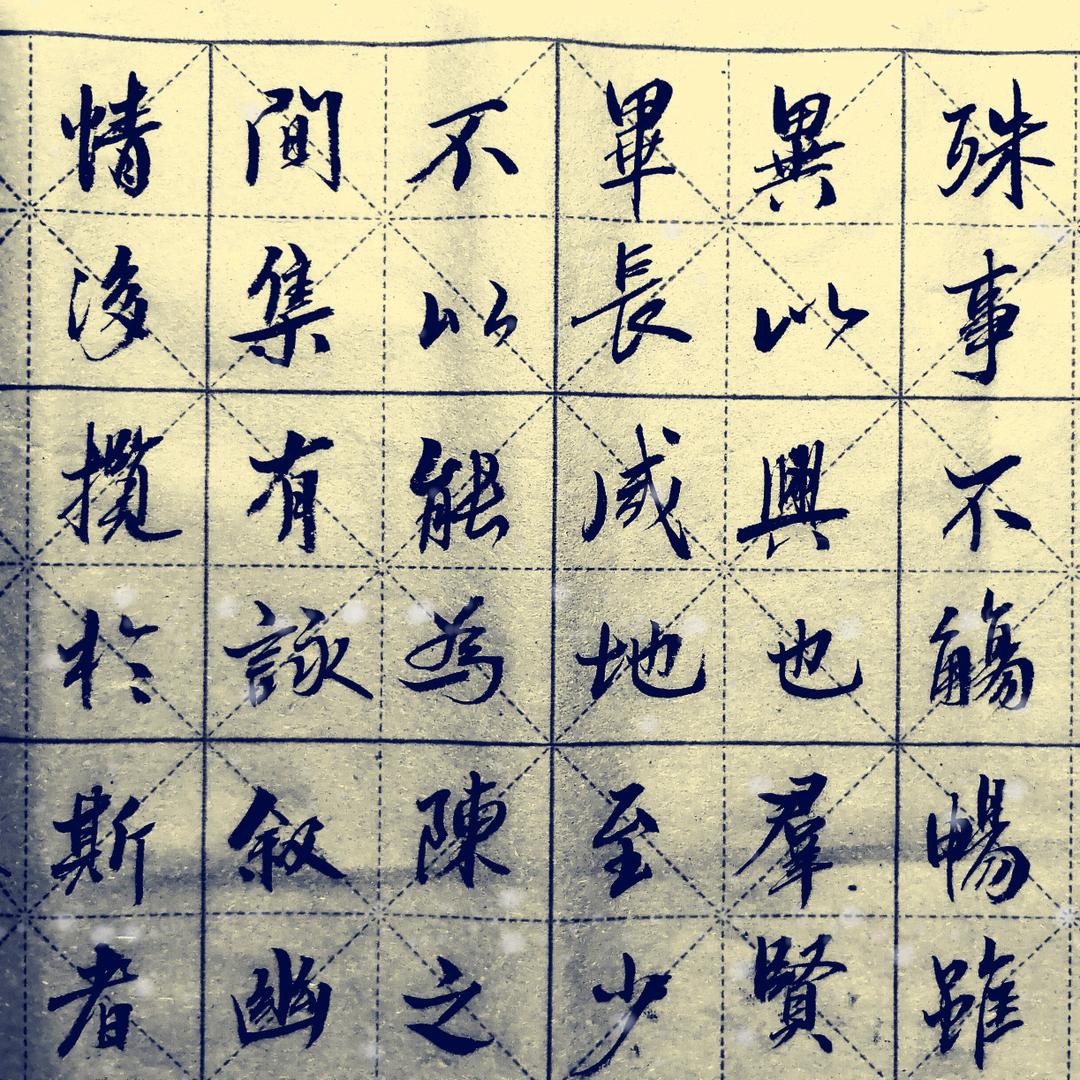 殊事不觴暢雖
異以興也羣賢
畢長咸地至少
不以能為陳之
間集有詠叙幽
情後攬於斯者